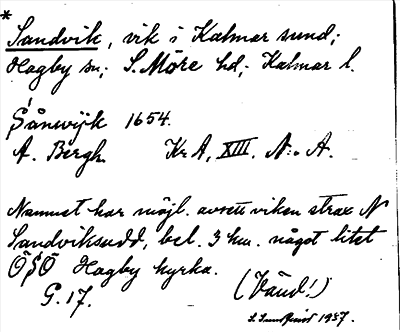 *
Sandvik, vik i Kalmar sund;
Hagby sn; S. Möre hd; Kalmar l.
Sånwijk 1654.
A. Bergh. Kr A, XIII. N:o A.
Namnet har möjl. avsett viken strax N
Sandviksudd, bel. 3 km. något litet
ÖSÖ Hagby kyrka.
G. 17. (Vänd!)
1937.